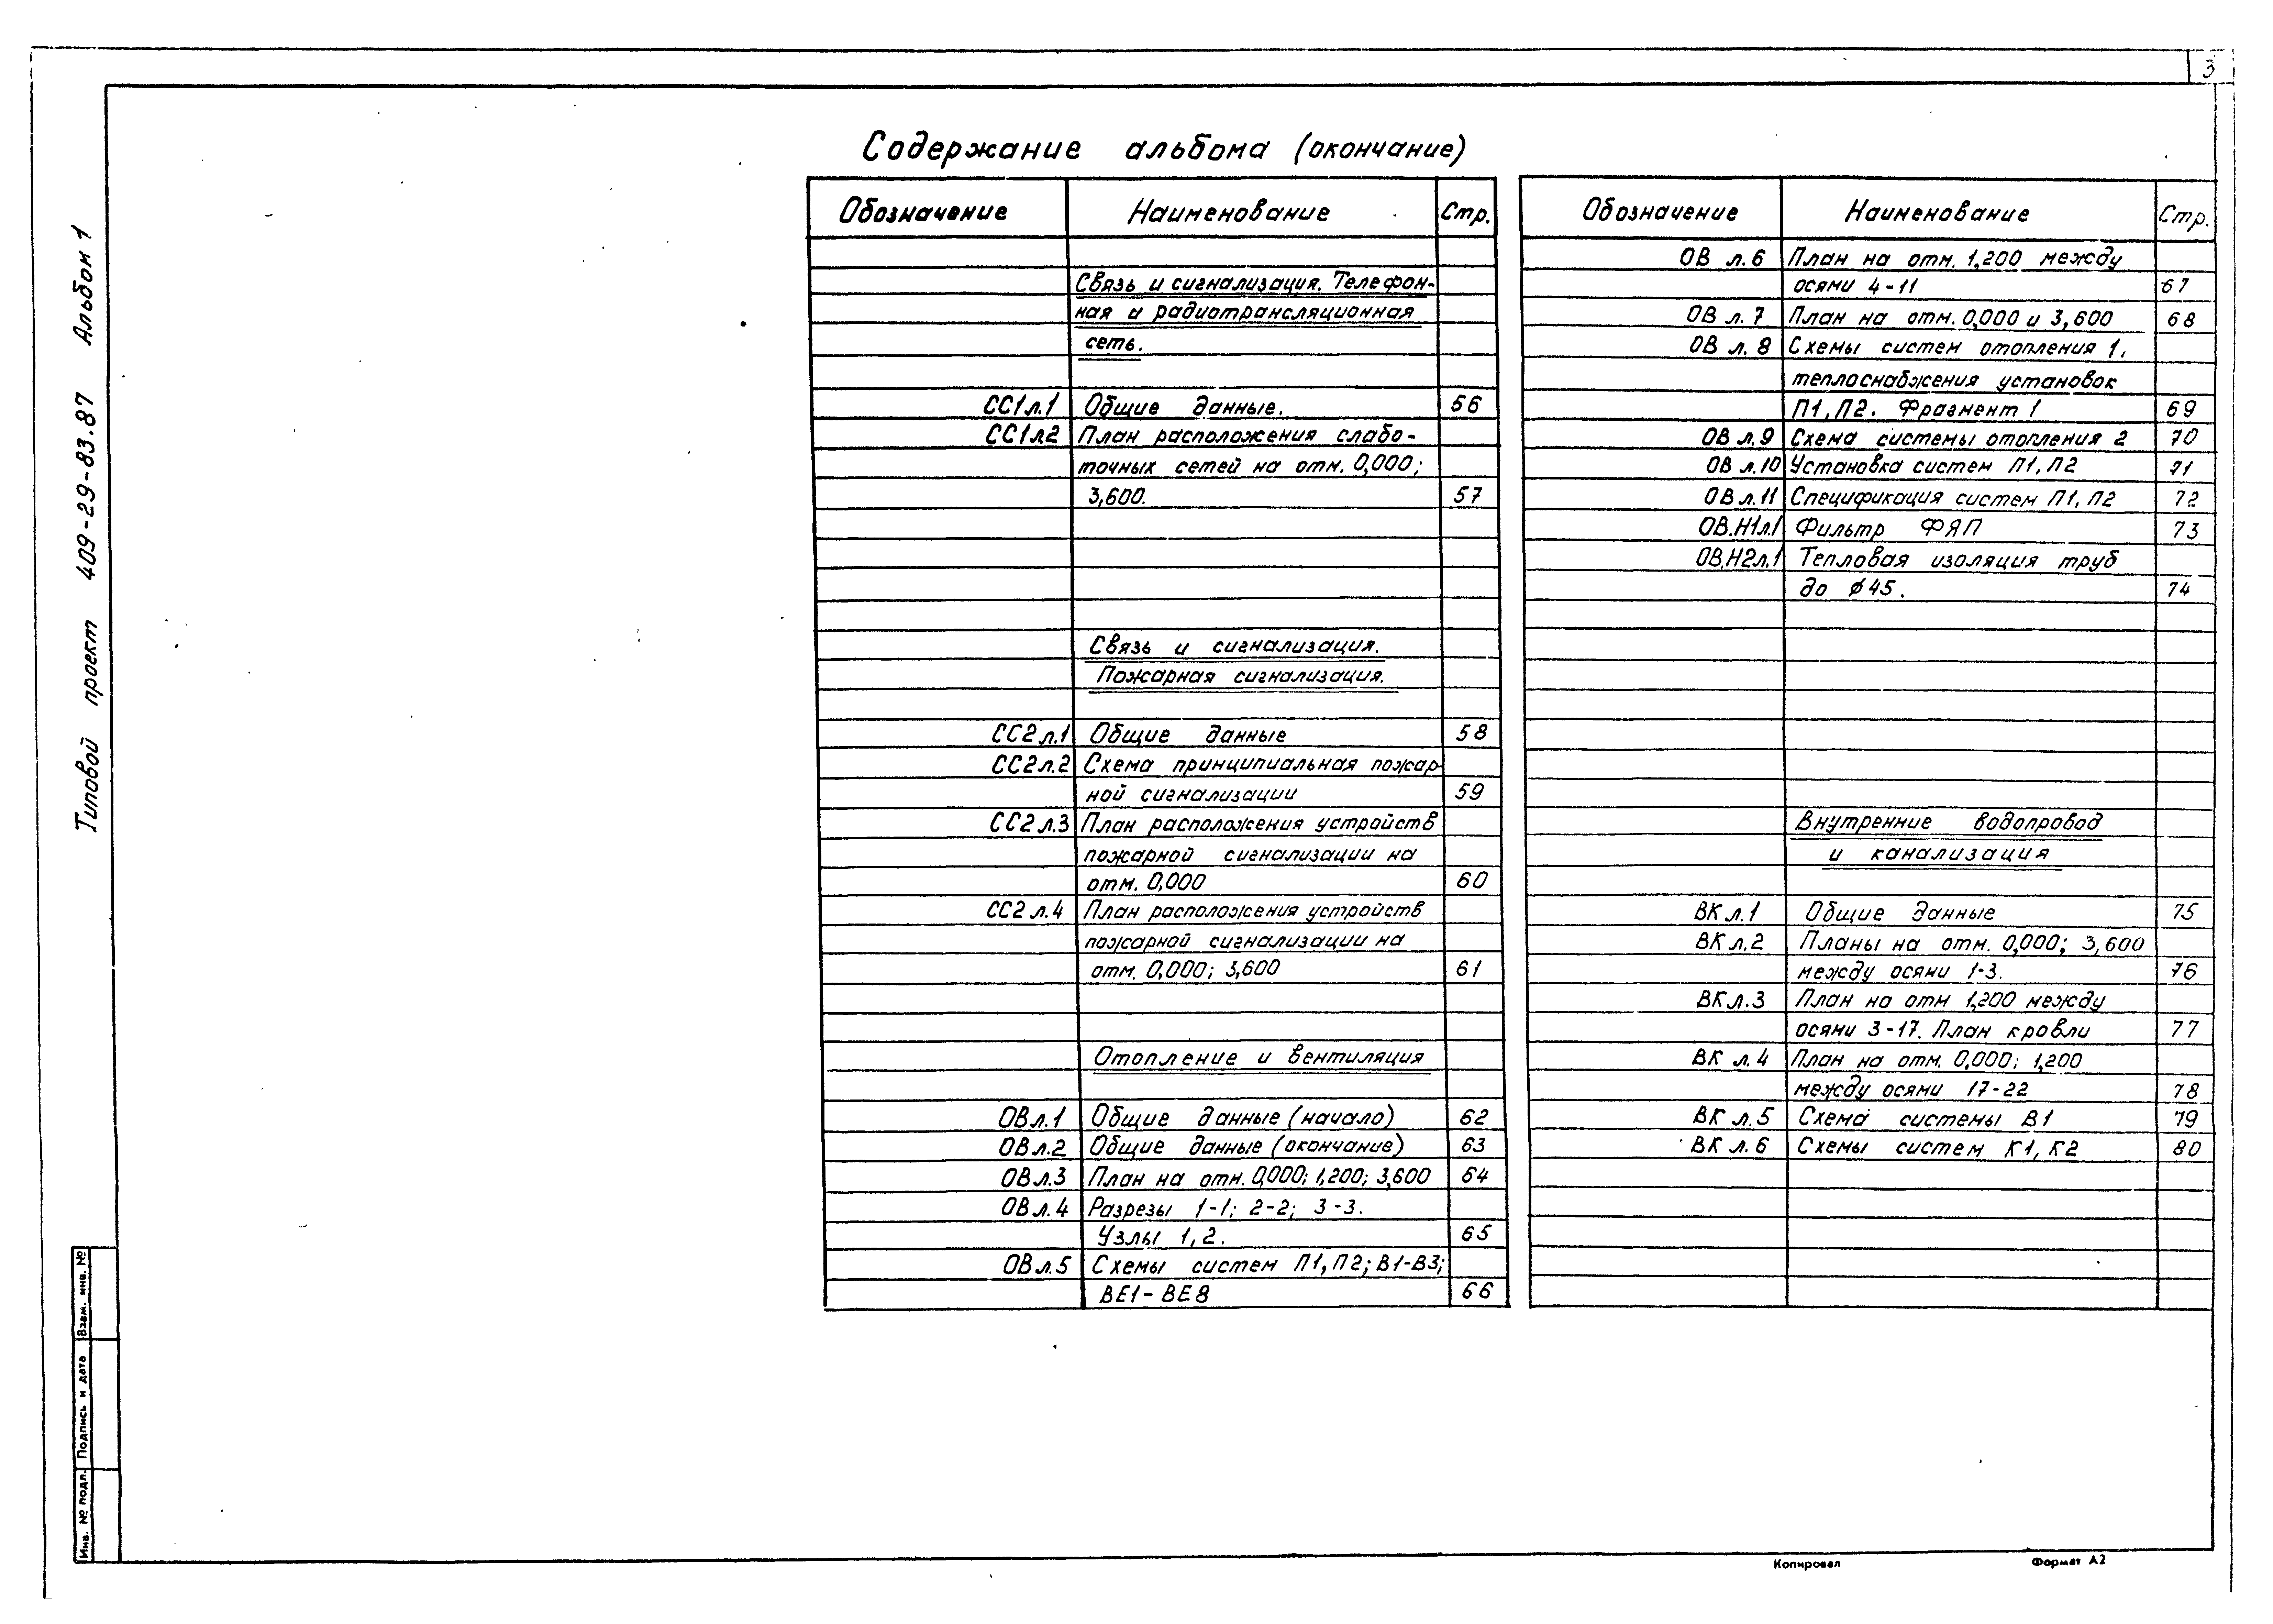 3
Содержание альбома (окончание)
Обозначение Наименование Стр.
Связь и сигнализация. Телефон-
ная и радиотрансляционная
сеть.
СС1л.1 Общие данные. 56
СС1л.2 План расположения слабо-
точных сетей на отм. 0,000;
3,600. 57
Связь и сигнализация.
Пожарная сигнализация.
СС2л.1 Общие данные 58
СС2л.2 Схема принципиальная пожар-
ной сигнализации 59
СС2л.3 План расположения устройств
пожарной сигнализации на
отм. 0,000 60
СС2л.4 План расположения устройств
пожарной сигнализации на
отм. 0,000; 3,600 61
Отопление и вентиляция
ОВл.1 Общие данные (начало) 62
ОВл.2 Общие данные (окончание) 63
ОВл.3 План на отм. 0,000; 1,200; 3,600 64
ОВл.4 Разрезы 1-1; 2-2; 3-3.
Узлы 1,2. 65
ОВл.5 Схемы систем П1,П2; В1-В3;
ВЕ1-ВЕ8 66
Обозначение Наименование Стр.
ОВ л.6 План на отм. 1,200 между
осями 4-11 67
ОВ л.7 План на отм. 0,000 и 3,600 68
ОВ л.8 Схемы систем отопления 1,
теплоснабжения установок
П1,П2. Фрагмент 1 69
ОВ л.9 Схема системы отопления 2 70
ОВ л.10 Установка систем П1,П2 71
ОВ л.11 Спецификация систем П1,П2 72
ОВ.Н1л.1 Фильтр ФЯП 73
ОВ.Н2л.1 Тепловая изоляция труб
до ø45. 74
Внутренние водопровод
и канализация
ВК л.1 Общие данные 75
ВК л.2 Планы на отм. 0,000; 3,600
между осями 1-3. 76
ВК л.3 План на отм 1,200 между
осями 3-17. План кровли 77
ВК л.4 План на отм. 0,000; 1,200
между осями 17-22 78
ВК л.5 Схема системы В1 79
ВК л.6 Схемы систем К1, К2 80
Типовой проект 409-29-83.87 Альбом 1
Инв. № подл. Подпись и дата Взам. инв. №
Копировал Формат А2